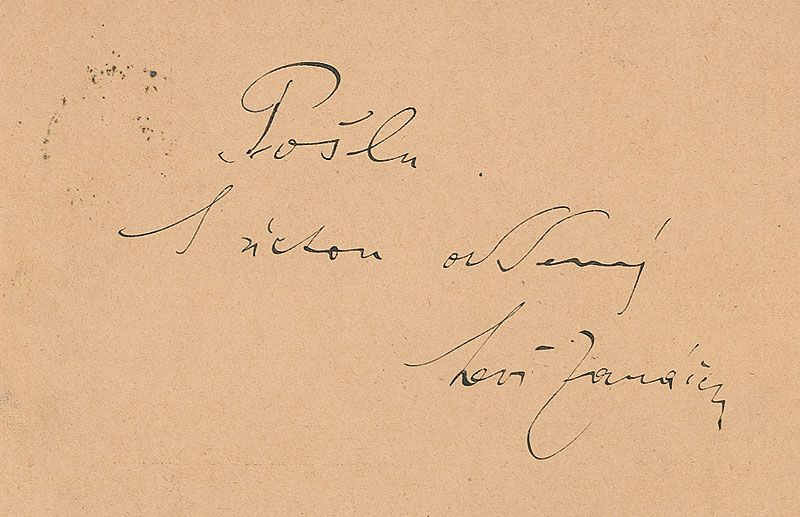 Pošlu.
S úctou oddaný
Leoš Janáček